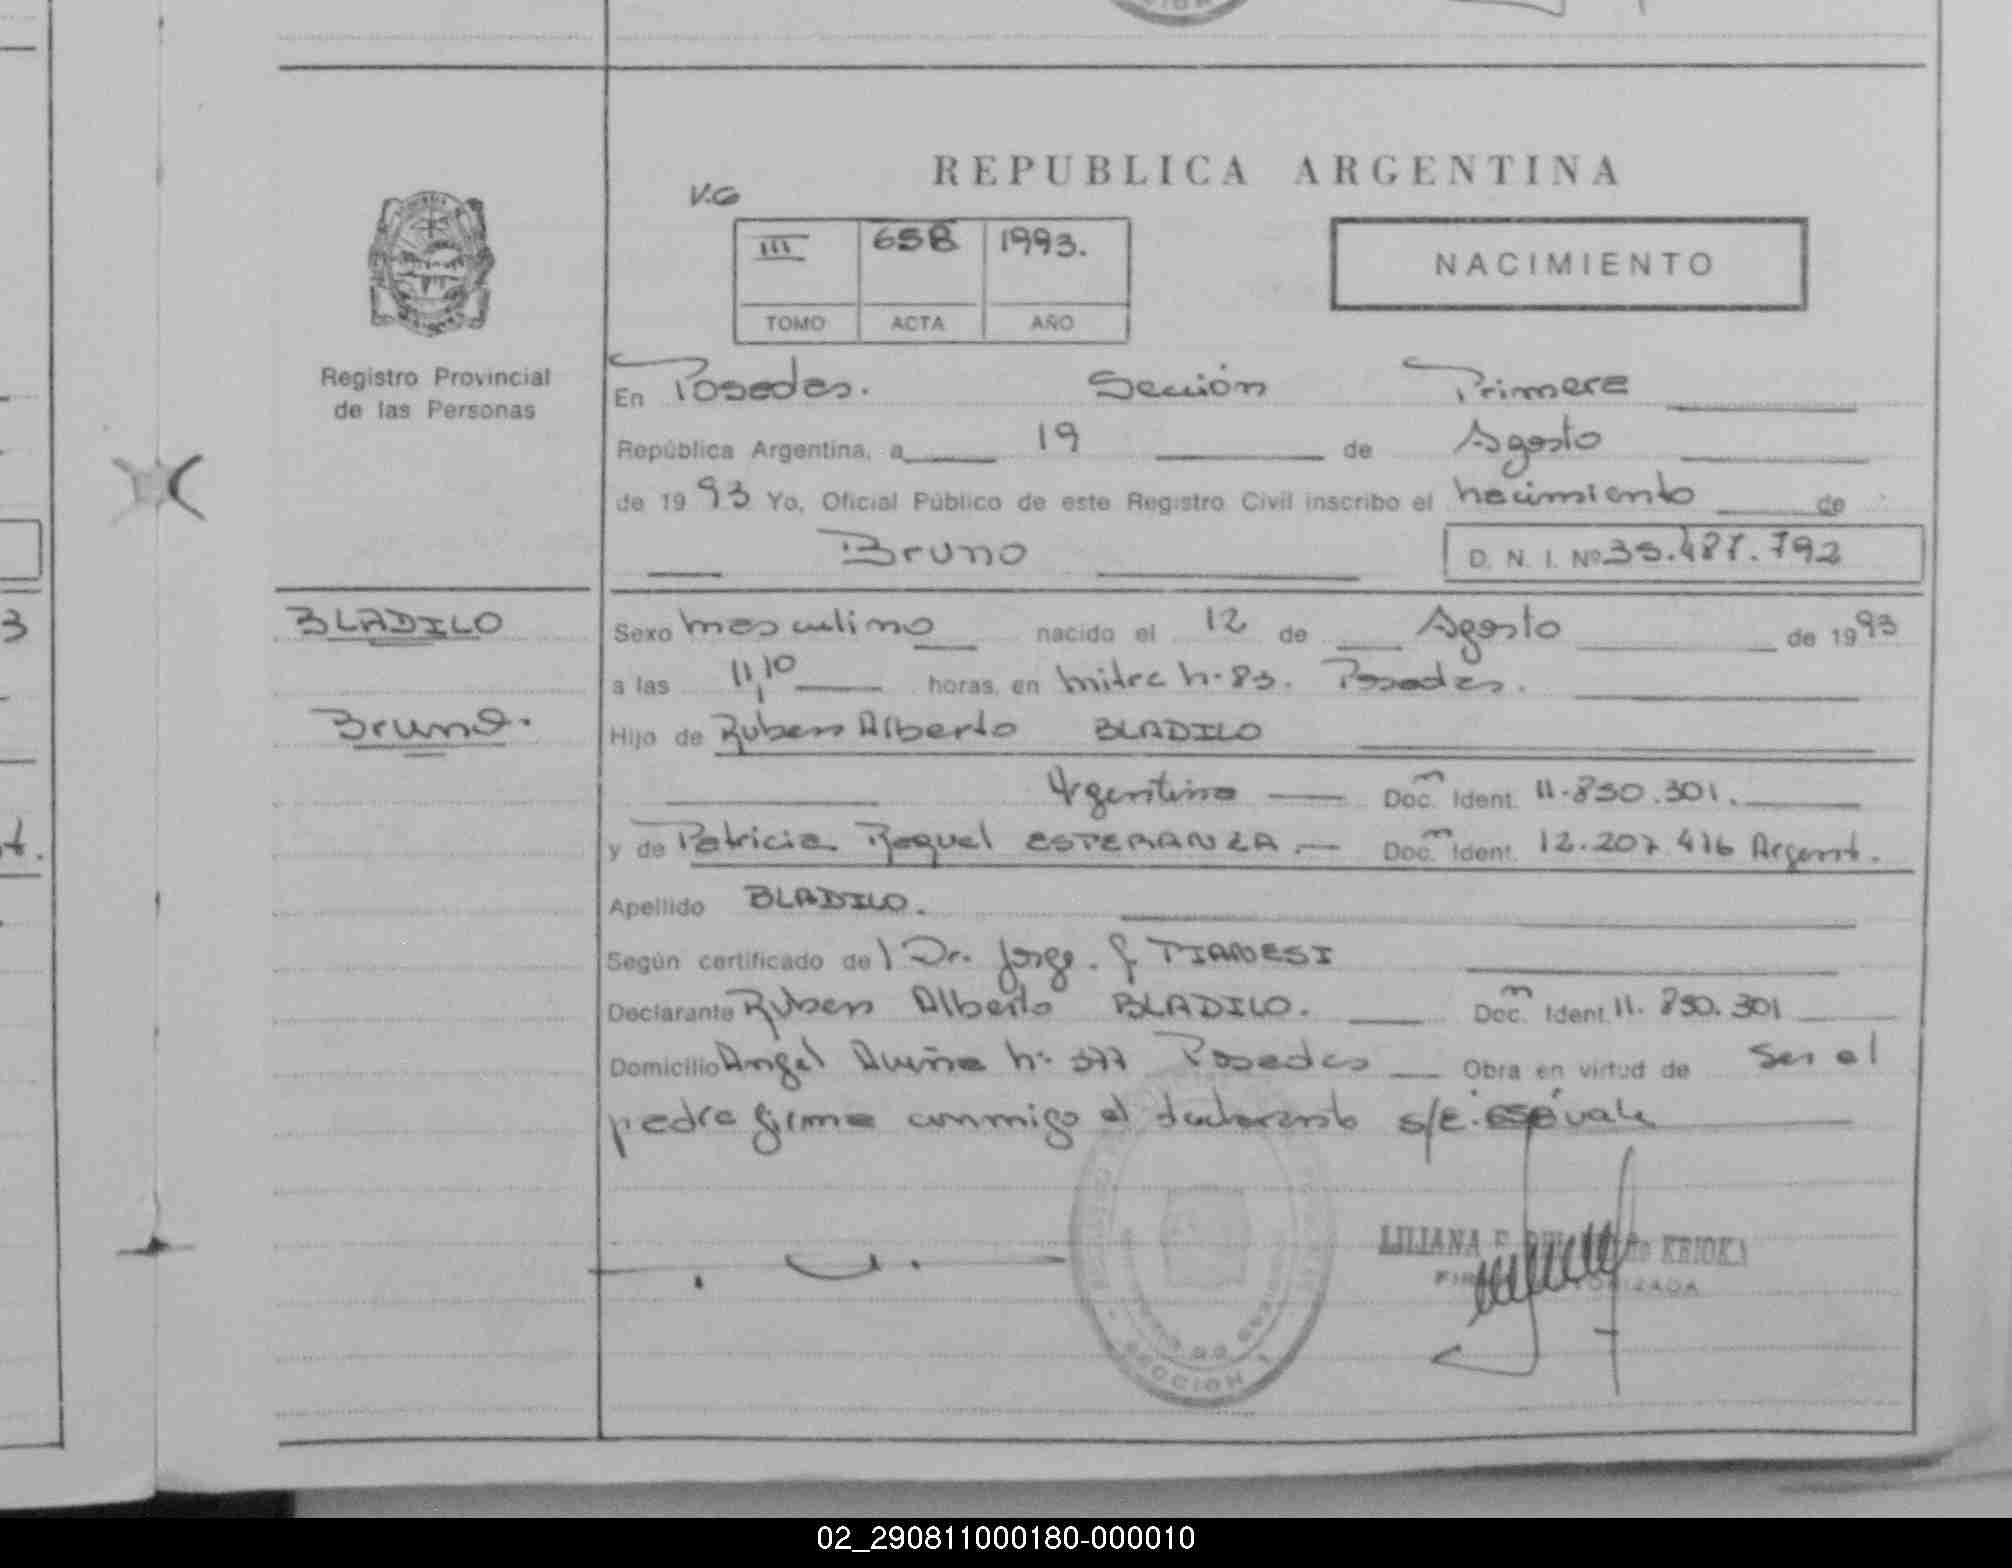 REPUBLICA ARGENTINA
V.G
III 658 1993.
TOMO ACTA AÑO
NACIMIENTO
Registro Provincial
de las Personas
En Posadas. Sección Primera
República Argentina, a 19 de Agosto
de 1993 Yo, Oficial Público de este Registro Civil inscribo el nacimiento de
Bruno D. N. I. Nº 35.487.792
BLADILO
Bruno.
Sexo masculino nacido el 12 de Agosto de 1993
a las 11,10 horas, en Mitre Nº 83. Posadas.
Hijo de Ruben Alberto BLADILO
Argentino Doc. Ident. 11.850.301.
y de Patricia Raquel ESPERANZA.— Doc. Ident. 12.207.416 Argent.
Apellido BLADILO.
Según certificado del Dr. Jorge
Declarante Ruben Alberto BLADILO. Doc. Ident. 11.850.301
Domicilio Angel Acuña Nº 377 Posadas Obra en virtud de ser el
padre firma conmigo el declarante s/e. vale
LILIANA KRIOKA
SECCION 1
02_290811000180-000010